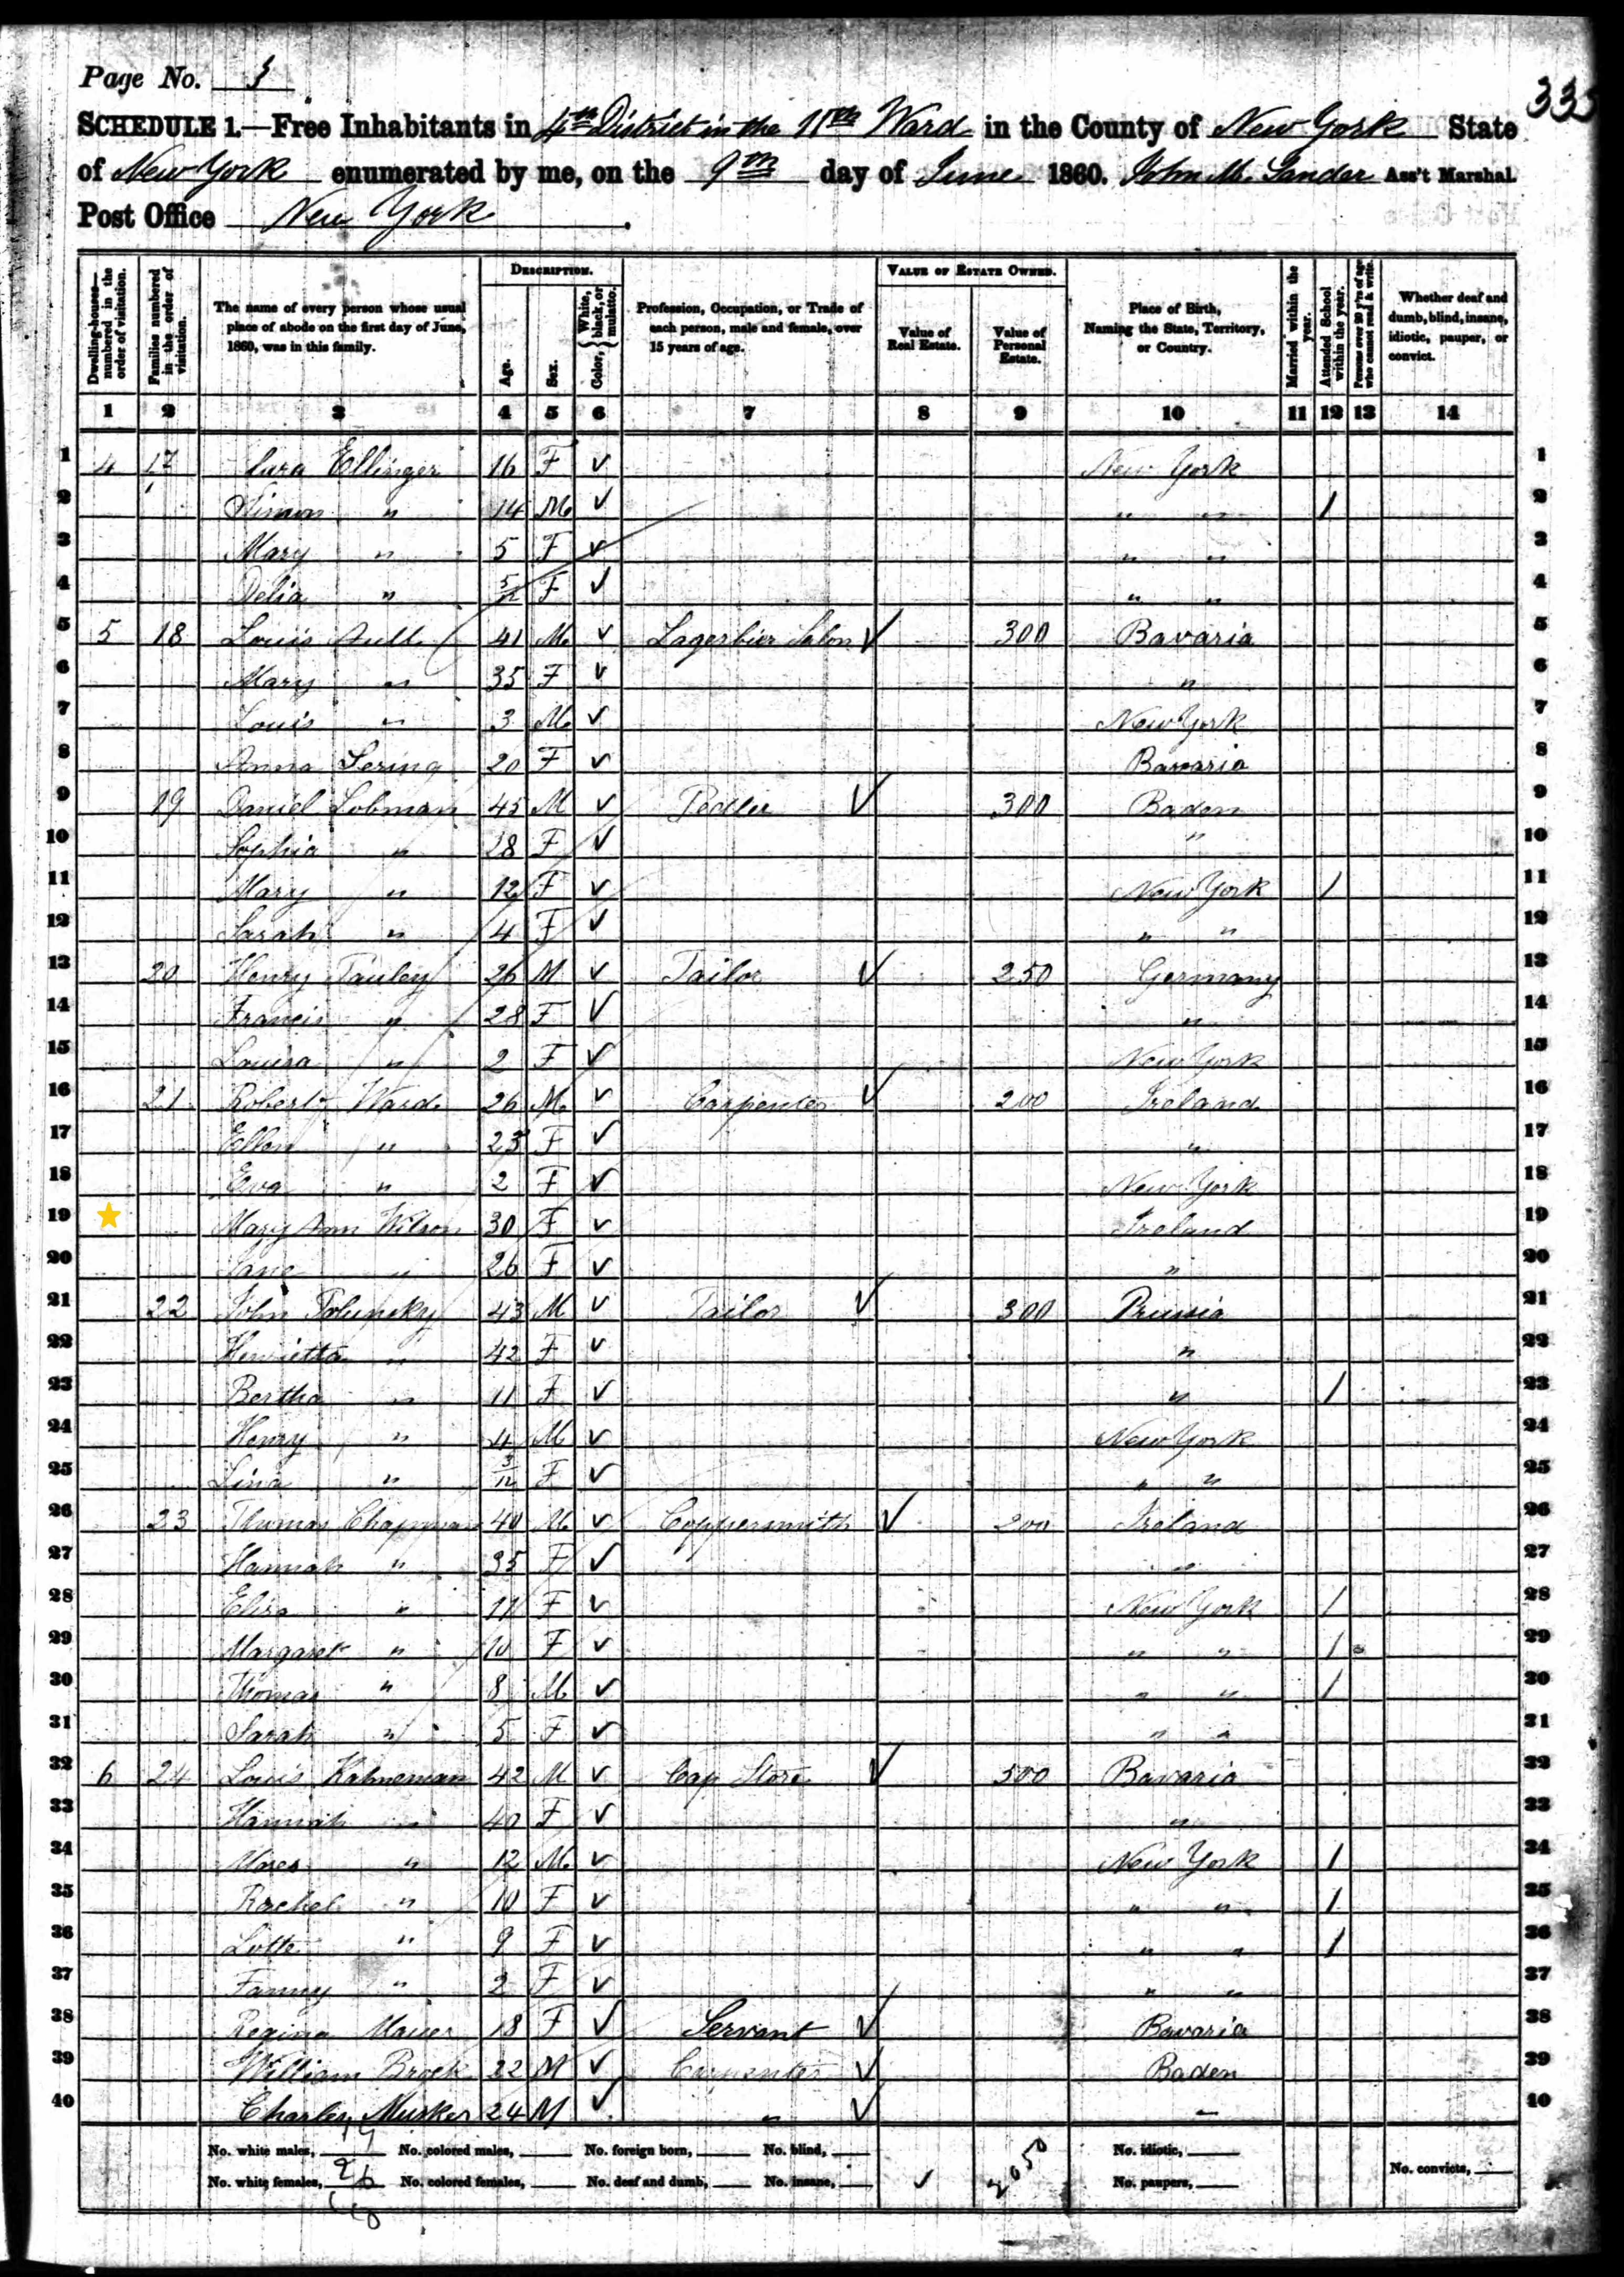 Page No. 3
SCHEDULE 1.—Free Inhabitants in 4th District in the 11th Ward in the County of New York State
of New York enumerated by me, on the 9th day of June 1860. John M. Ass't Marshal.
Post Office New York.
Dwelling-houses—numbered in the order of visitation.
Families numbered in the order of visitation.
The name of every person whose usual place of abode on the first day of June, 1860, was in this family.
DESCRIPTION.
Age.
Sex.
Color, { White, black, or mulatto.
Profession, Occupation, or Trade of each person, male and female, over 15 years of age.
VALUE OF ESTATE OWNED.
Value of Real Estate.
Value of Personal Estate.
Place of Birth, Naming the State, Territory, or Country.
Married within the year.
Attended School within the year.
Persons over 20 y'rs of age who cannot read & write.
Whether deaf and dumb, blind, insane, idiotic, pauper, or convict.
1 2 3 4 5 6 7 8 9 10 11 12 13 14
1 4 17 Ellinger 16 F ✓ New York 1
2 Simon " 14 M ✓ " " / 2
3 Mary " 5 F ✓ " " 3
4 Delia " 5/12 F ✓ " " 4
5 5 18 Louis 41 M ✓ Lagerbier Salon ✓ 300 Bavaria 5
6 Mary " 35 F ✓ " 6
7 Louis " 3 M ✓ New York 7
8 Anna 20 F ✓ Bavaria 8
9 19 Daniel Lobman 45 M ✓ Pedler ✓ 300 Baden 9
10 Sophia " 28 F ✓ " 10
11 Mary " 12 F ✓ New York / 11
12 Sarah " 4 F ✓ " " 12
13 20 Henry Pauley 26 M ✓ Tailor ✓ 250 Germany 13
14 Francis " 28 F ✓ " 14
15 Louisa " 2 F ✓ New York 15
16 21 Robert Ward 26 M ✓ Carpenter ✓ 200 Ireland 16
17 Ellen " 23 F ✓ " 17
18 Eva " 2 F ✓ New York 18
19 Mary Ann Wilson 30 F ✓ Ireland 19
20 Jane " 26 F ✓ " 20
21 22 John 43 M ✓ Tailor ✓ 300 Prussia 21
22 Henrietta " 42 F ✓ " 22
23 Bertha " 11 F ✓ " / 23
24 Henry " 4 M ✓ New York 24
25 Lina " 3/12 F ✓ " " 25
26 23 Thomas Chapman 40 M ✓ Coppersmith ✓ 200 Ireland 26
27 Hannah " 35 F ✓ " 27
28 Eliza " 11 F ✓ New York / 28
29 Margaret " 10 F ✓ " " / 29
30 Thomas " 8 M ✓ " " / 30
31 Sarah " 5 F ✓ " " 31
32 6 24 Louis Kahneman 42 M ✓ Cap Store ✓ 500 Bavaria 32
33 Hannah " 40 F ✓ " 33
34 Moses " 12 M ✓ New York / 34
35 Rachel " 10 F ✓ " " / 35
36 Lotte " 9 F ✓ " " / 36
37 Fanny " 2 F ✓ " " 37
38 Regina Mauer 18 F ✓ Servant ✓ Bavaria 38
39 William Brock 22 M ✓ Carpenter ✓ Baden 39
40 Charles Musker 24 M ✓ " ✓ " 40
No. white males, 14 No. colored males, No. foreign born, No. blind, No. idiotic,
No. white females, 26 No. colored females, No. deaf and dumb, No. insane, ✓ 2050 No. paupers, No. convicts,
40